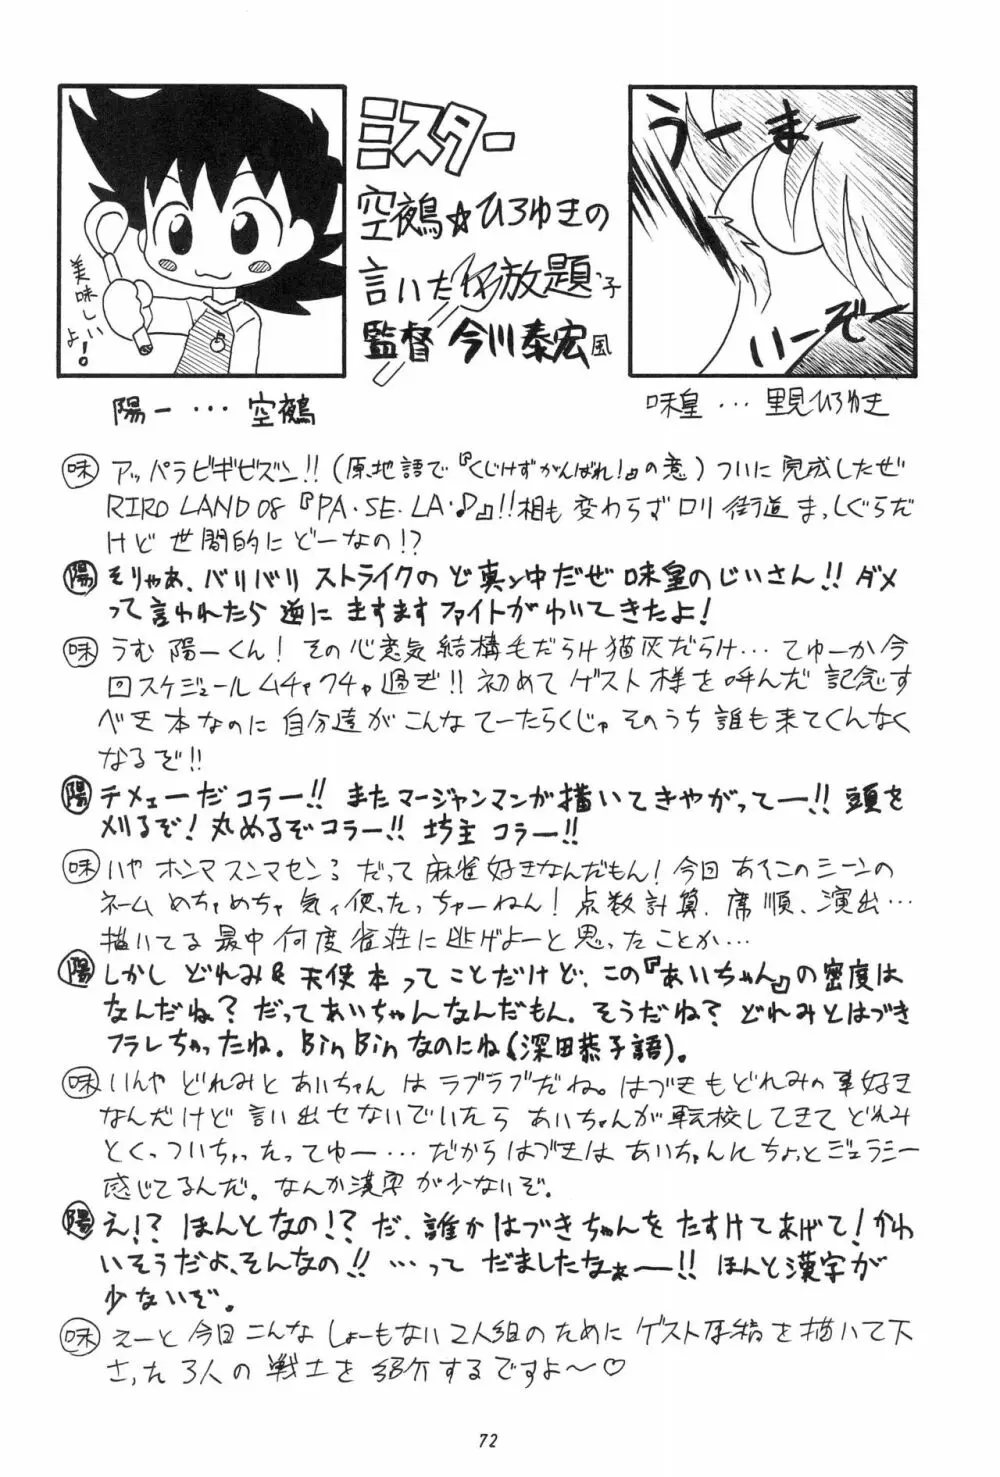 美味しい
よ!
ミスター
空鵺☆ひろゆきの
言いたい放題
監督 今川泰宏風
うーまー
いーぞー
陽一・・・空鵺
味皇・・・里見ひろゆき
味 アッパラビギビズン!!(原地語で『くじけずがんばれ!』の意)ついに完成したぜ
RIRO LAND 08『PA・SE・LA・♪』!!相も変わらずロリ街道まっしぐらだ
けど世間的にどーなの!?
陽 そりゃあ、バリバリストライクのど真ン中だぜ味皇のじいさん!!ダメ
って言われたら逆にますますファイトがわいてきたよ!
味 うむ陽一くん!その心意気結構毛だらけ猫灰だらけ・・・てゆーか今
回スケジュールムチャクチャ過ぎ!!初めてゲスト様を呼んだ記念す
べき本なのに自分達がこんなてーたらくじゃそのうち誰も来てくんなく
なるぞ!!
陽 チメェーだコラー!!またマージャンマンガ描いてきやがってー!!頭を
刈るぞ!丸めるぞコラー!!坊主コラー!!
味 いやホンマスンマセンろ だって麻雀好きなんだもん!今回あそこのシーンの
ネームめちゃめちゃ気ィ使ったっちゃーねん!点数計算、席順、演出・・・
描いてる最中何度雀荘に逃げよーと思ったことか・・・
陽 しかしどれみ&天使本ってことだけど、この『あいちゃん』の密度は
なんだね?だってあいちゃんなんだもん。そうだね?どれみとはづき
フラレちゃったね。BinBinなのにね(深田恭子語)。
味 いんやどれみとあいちゃんはラブラブだね。はづきもどれみの事好き
なんだけど言い出せないでいたらあいちゃんが転校してきてどれみ
とくっついちゃったってゆー・・・だからはづきはあいちゃんにちょっとジェラシー
感じてるんだ。なんか漢字が少ないぞ。
陽 え!?ほんとなの!?だ、誰かはづきちゃんをたすけてあげて!かわ
いそうだよ、そんなの!!・・・ってだましたなぁー!!ほんと漢字が
少ないぞ。
味 えーと今回こんなしょーもない2人組のためにゲスト原稿を描いて下
さった3人の戦士を紹介するですよ〜♡
72